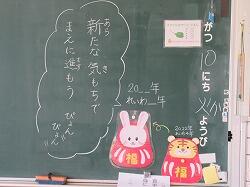 あら
新たな気もちで
まえに進もう
すす
ぴょん
ぴょん
20__年
れいわ__年
福
2022年
れいわ4年
福
がつ
10
にち
火
か
ようび